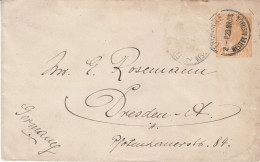 Mr. E. Rosemann
Dresden-A.
Pfotenhauerstr. 84.
(Germany)